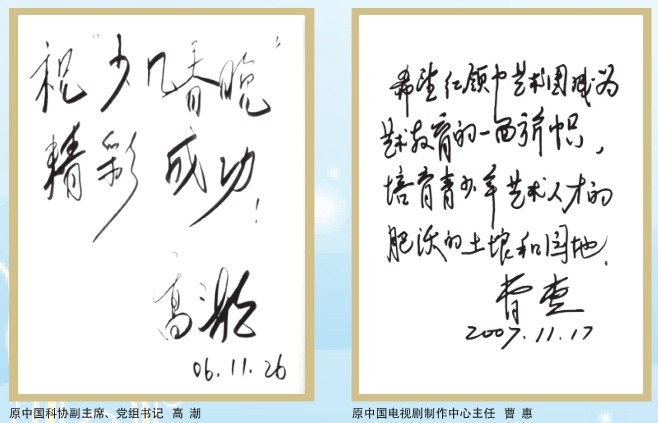 祝“少儿春晚”
精彩成功！
高潮
06.11.26
原中国科协副主席、党组书记 高 潮
希望红领巾艺术团成为
艺术教育的一面新帜，
培育青少年艺术人才的
肥沃的土壤和园地.
曹惠
2007.11.17
原中国电视剧制作中心主任 曹 惠